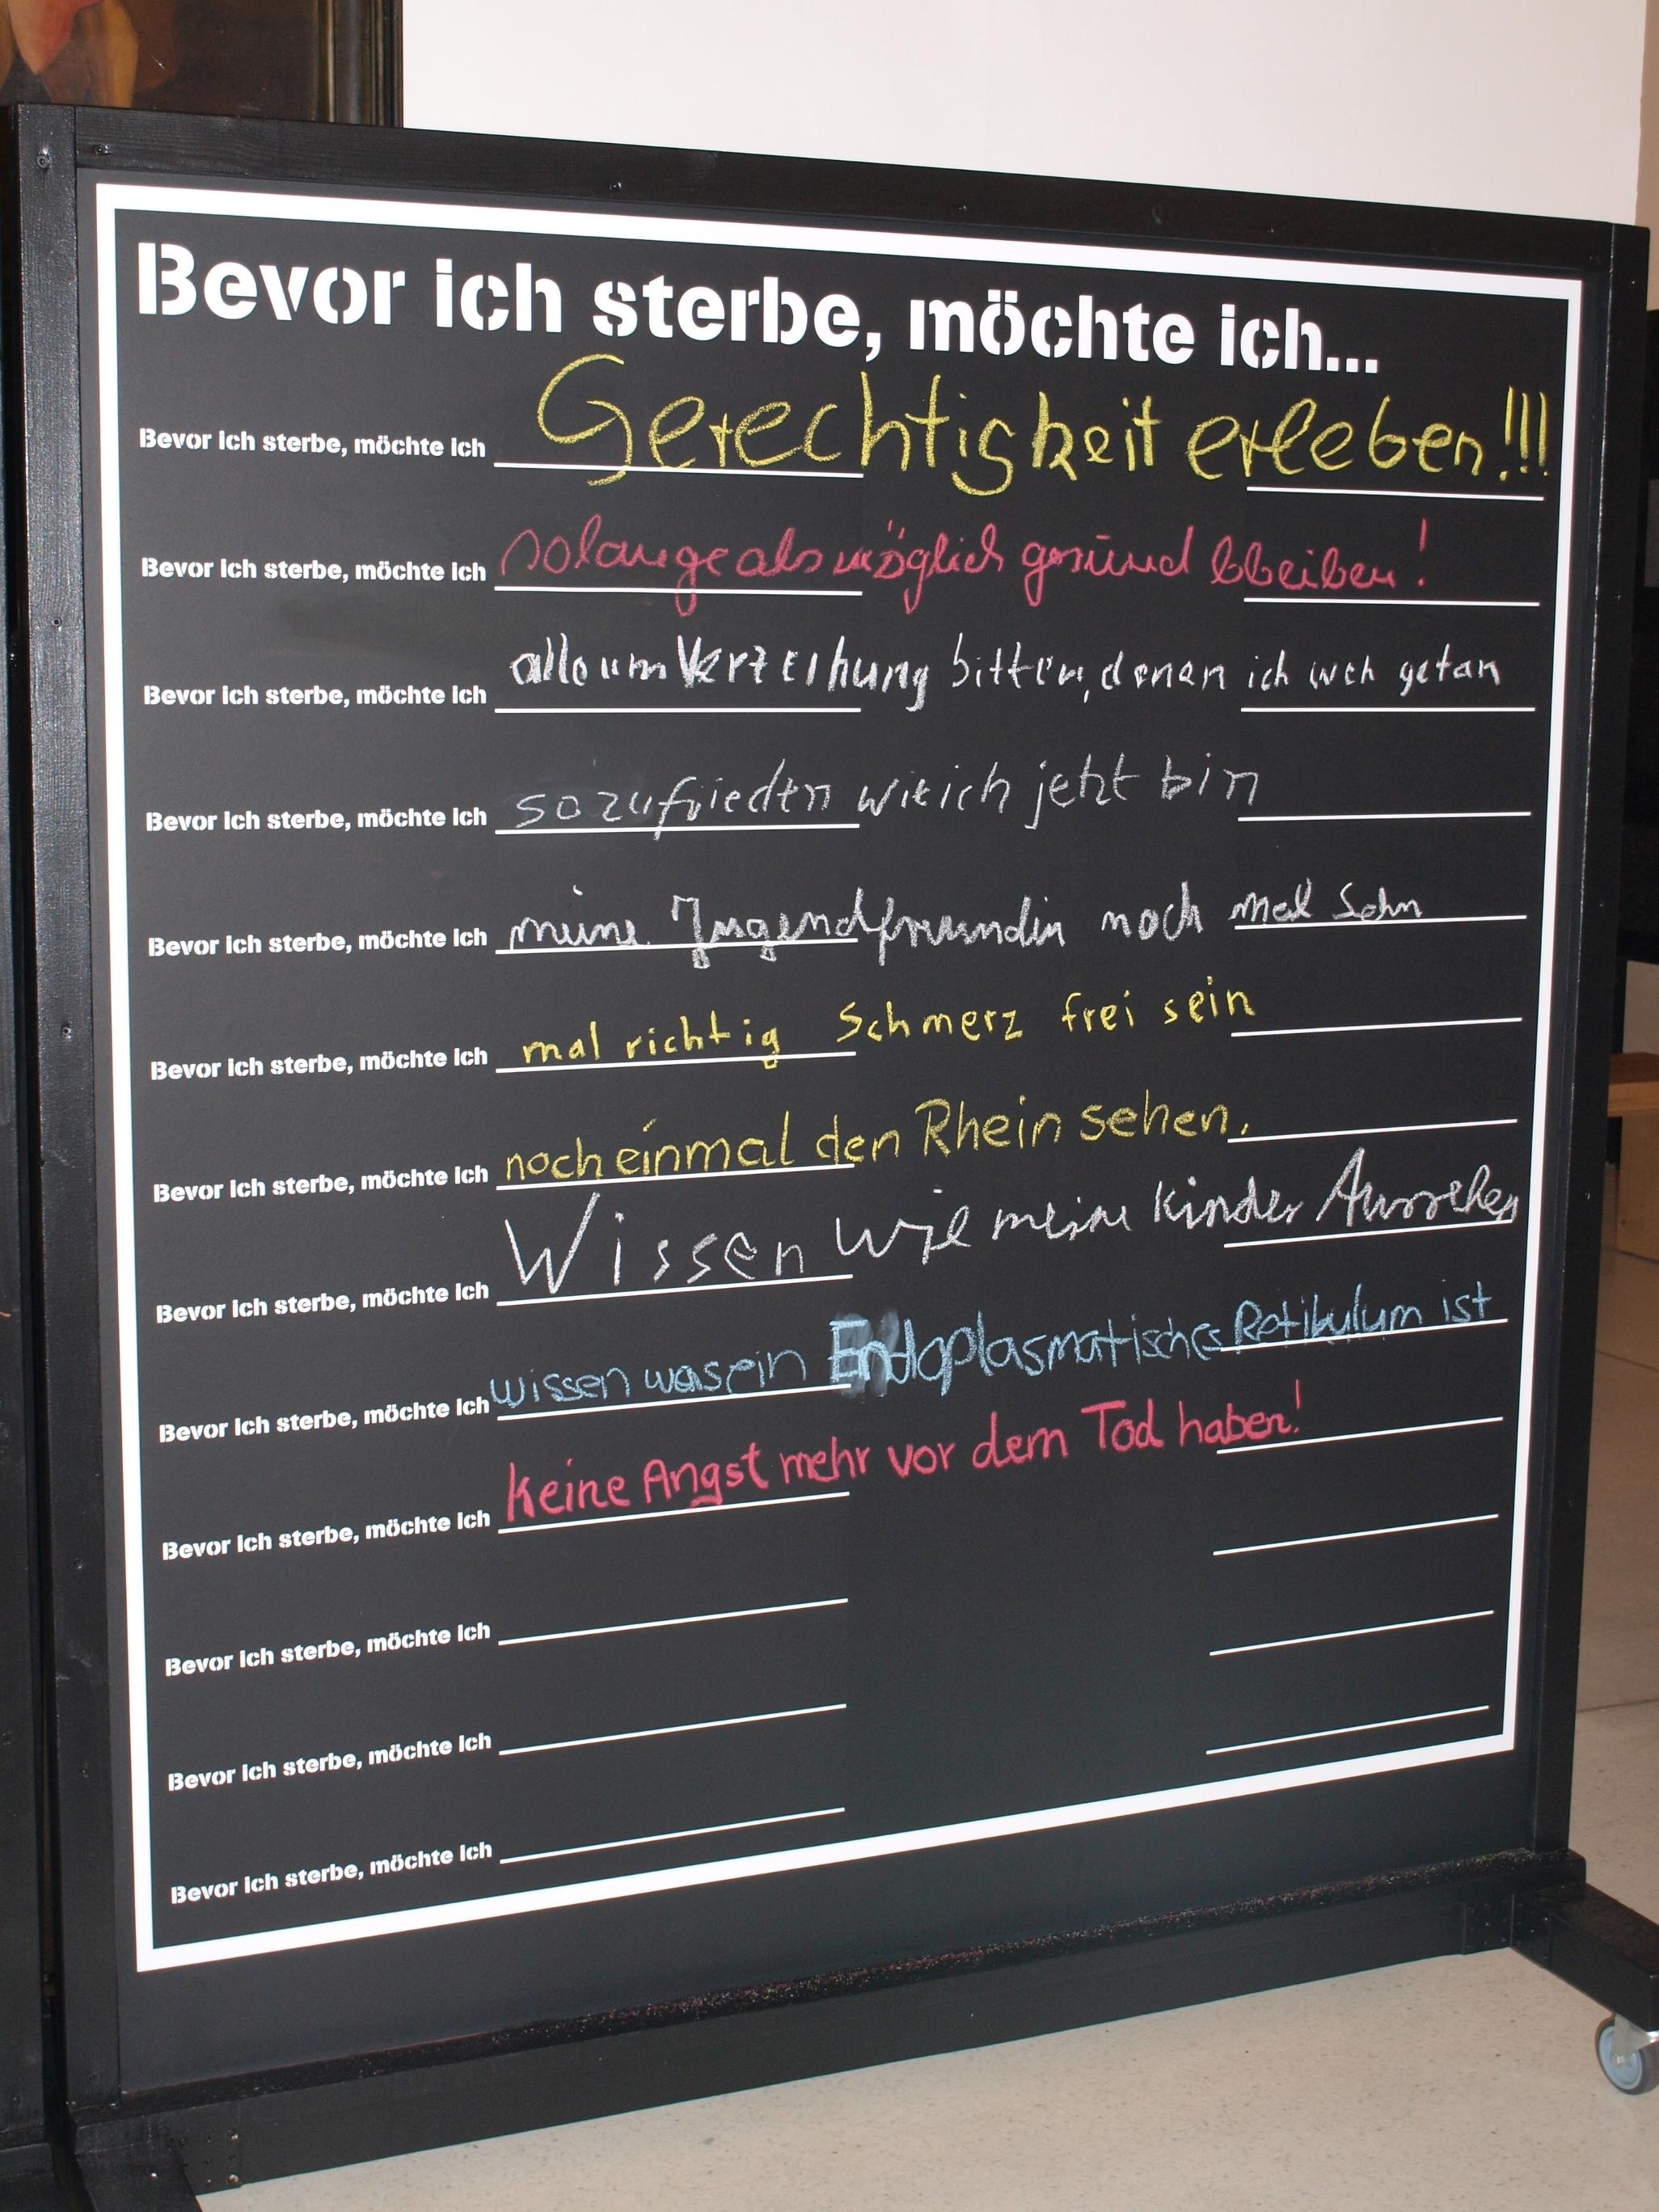 Bevor ich sterbe, möchte ich...
Bevor ich sterbe, möchte ich Gerechtigkeit erleben!!!
Bevor ich sterbe, möchte ich solange als möglich gesund bleiben!
Bevor ich sterbe, möchte ich alle um Verzeihung bitten, denen ich weh getan
Bevor ich sterbe, möchte ich so zufrieden wie ich jetzt bin
Bevor ich sterbe, möchte ich meine Jugendfreundin noch mal sehn
Bevor ich sterbe, möchte ich mal richtig Schmerz frei sein
Bevor ich sterbe, möchte ich noch einmal den Rhein sehen.
Bevor ich sterbe, möchte ich Wissen wie meine Kinder Aussehen
Bevor ich sterbe, möchte ich wissen was ein Endoplasmatisches Retikulum ist
Bevor ich sterbe, möchte ich keine Angst mehr vor dem Tod haben!
Bevor ich sterbe, möchte ich
Bevor ich sterbe, möchte ich
Bevor ich sterbe, möchte ich